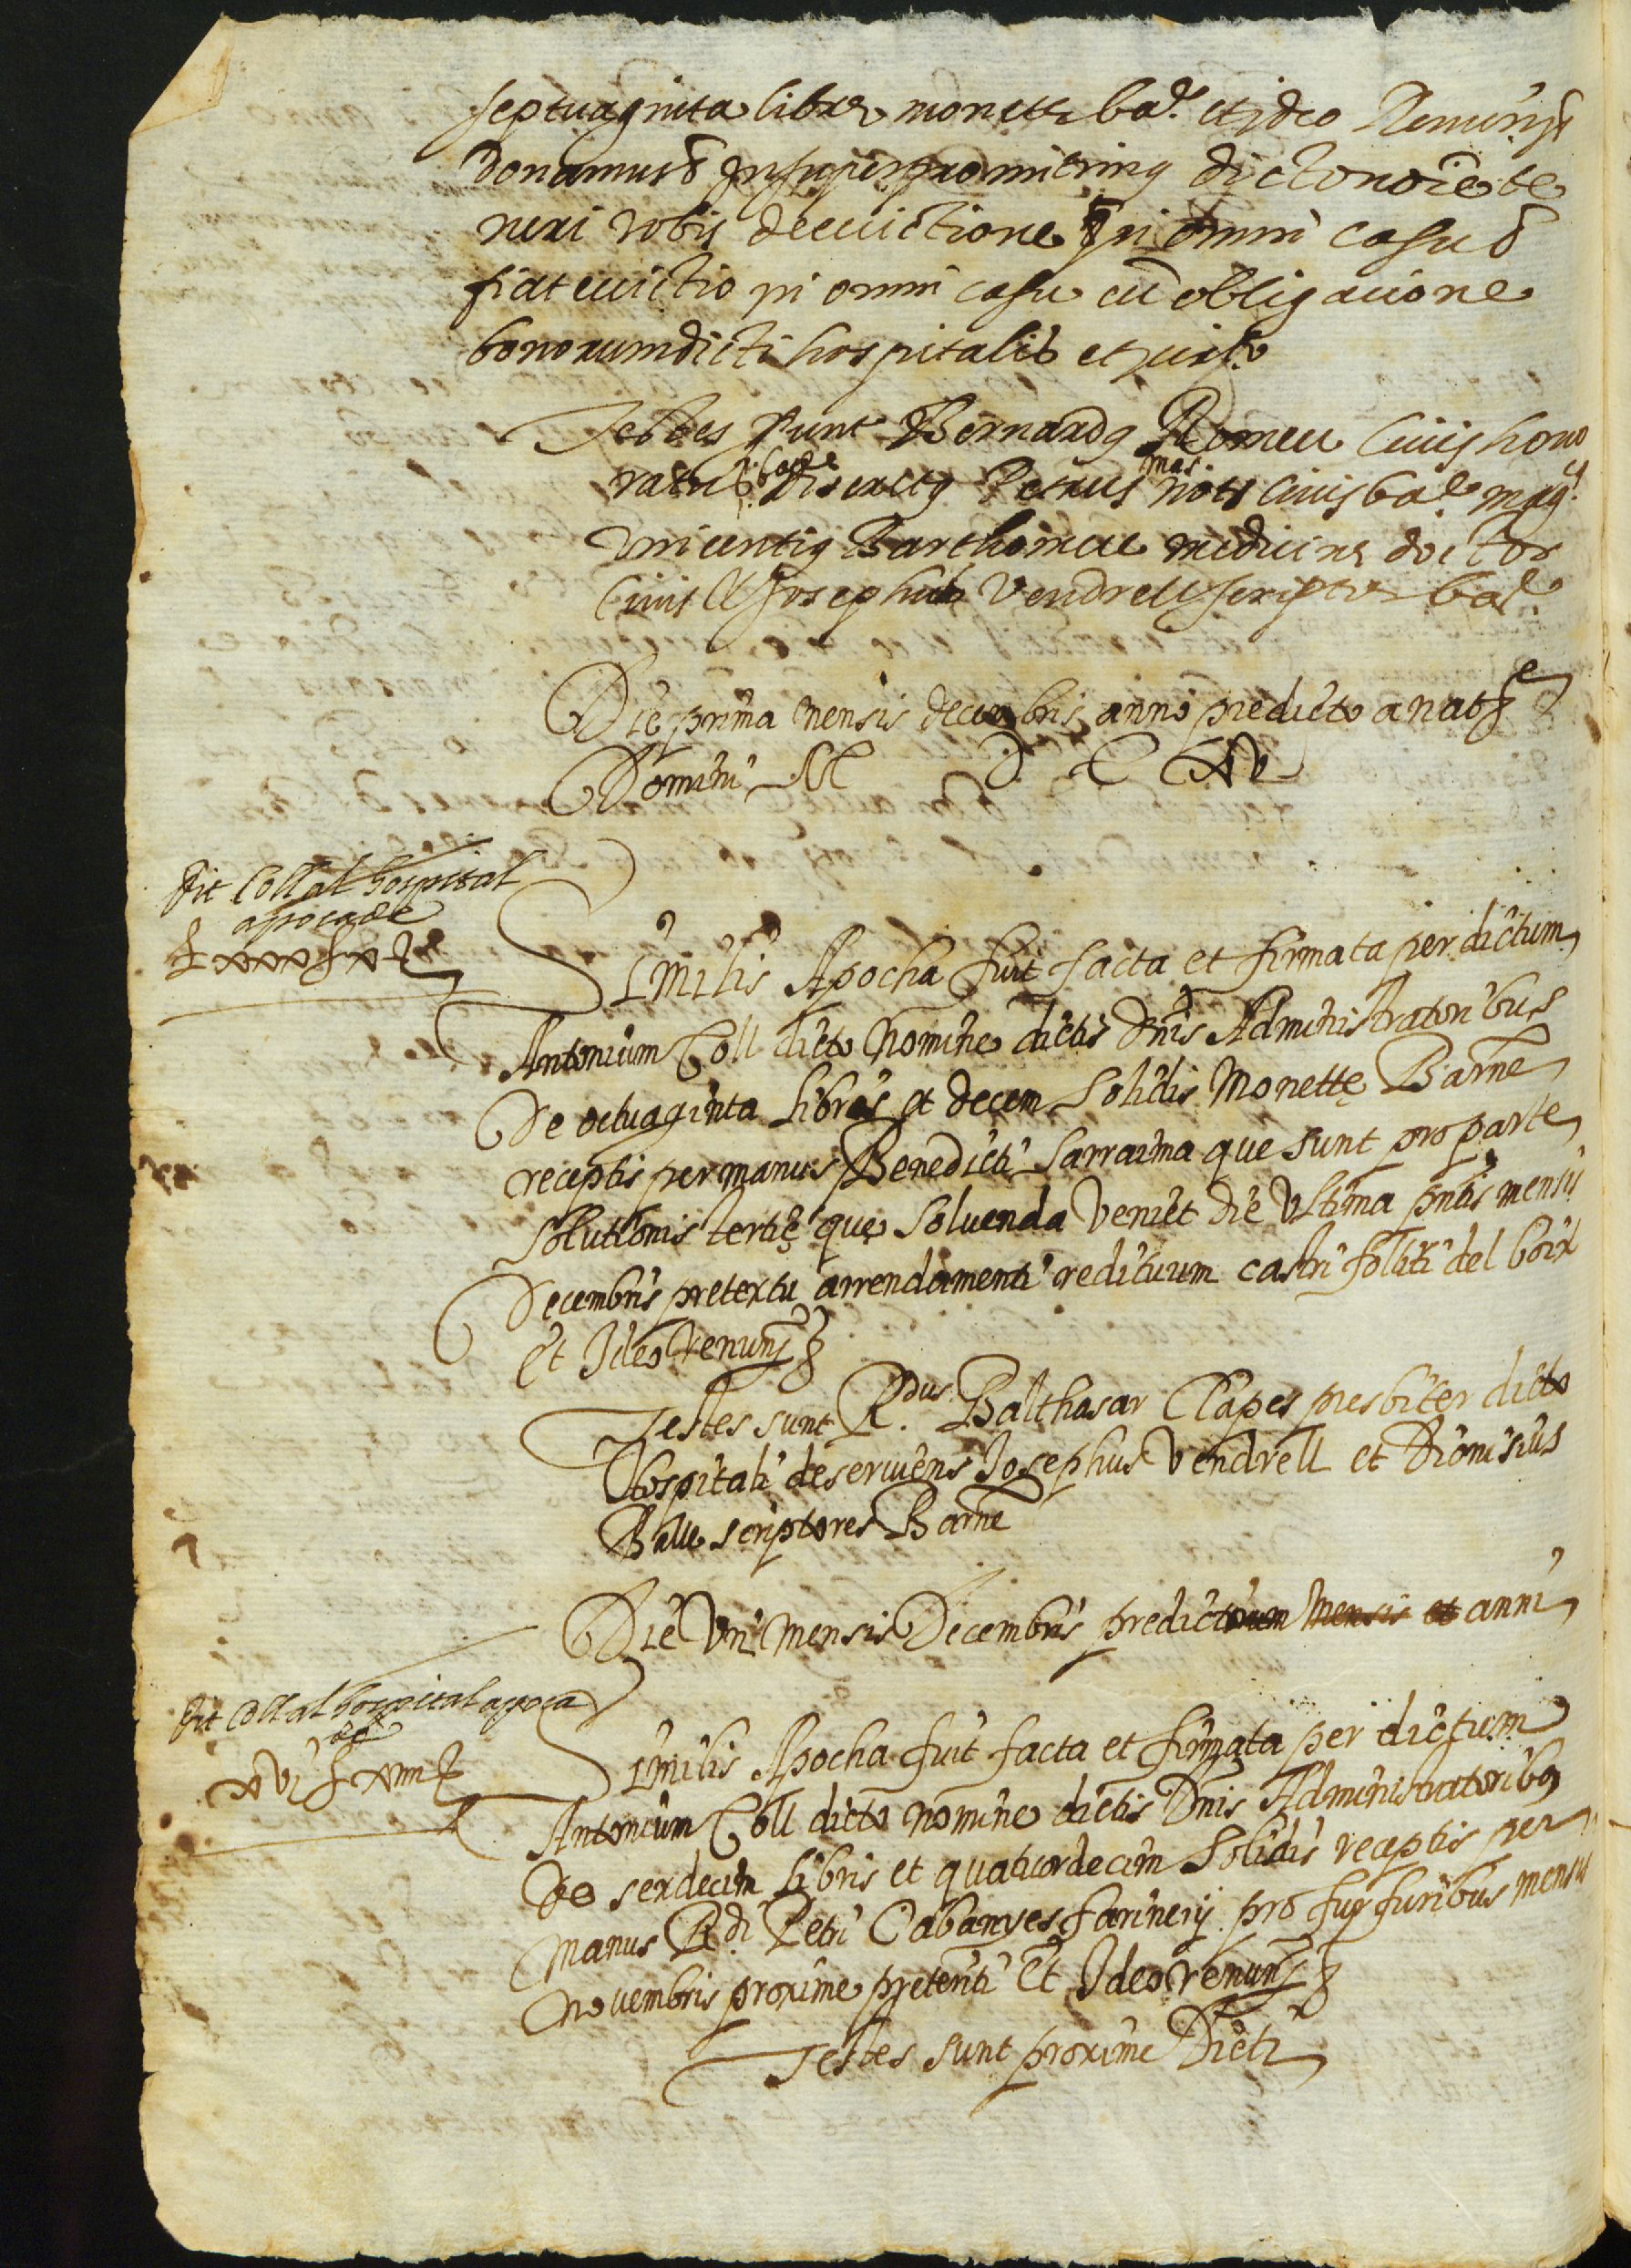 septuaginta libre monete bar. et ideo Renun
donamus & Insuper promittimus dicto noie te
neri vobis de evictione In omni casu &
fiat evictio in omni casu cu obligacione
bonorum dicti hospitalis et
Testes sunt Bernardus Romeu civis hono
ratus Bar discretus Petrus mas nots civis bar magcs
vincentius Barthomeu medicine doctor
civis et Josephus Vendrell scriptor bar.
Die prima mensis decembris anno predicto a nat
Domini M D C XV
Dit Coll al hospital
apoca de
Lxxx s x
Similis Apocha fuit facta et firmata per dictum
Antonium Coll dicto nomine dictis dnis Administratoribus
De octuaginta libris et decem solidis Monette Barne
receptis per manus Benedicti Sarraima que sunt pro parte
solutionis tertię que soluenda veniet die ultima pntis mensis
Decembris pretextu arrendamenti redituum castri follit del boix
Et Ideo renun
Testes sunt R.dus Balthasar Clapes presbiter dicto
Hospitali deseruiens Josephus Vendrell et Dionisius
Balle scriptores Barne
Die Mensis Decembris predictorum mensis et anni
Dit Coll al hospital apoca
de
xvi xiiii
Similis Apocha fuit facta et firmata per dictum
Antonium Coll dicto nomine dictis Dnis Administratoribus
De sexdecim libris et quatuordecim solidis receptis per
manus Rdi Petri Cabanyes farinerij pro furfuribus mensis
novembris proxime preteriti Et Ideo renun
Testes sunt proxime Dicti